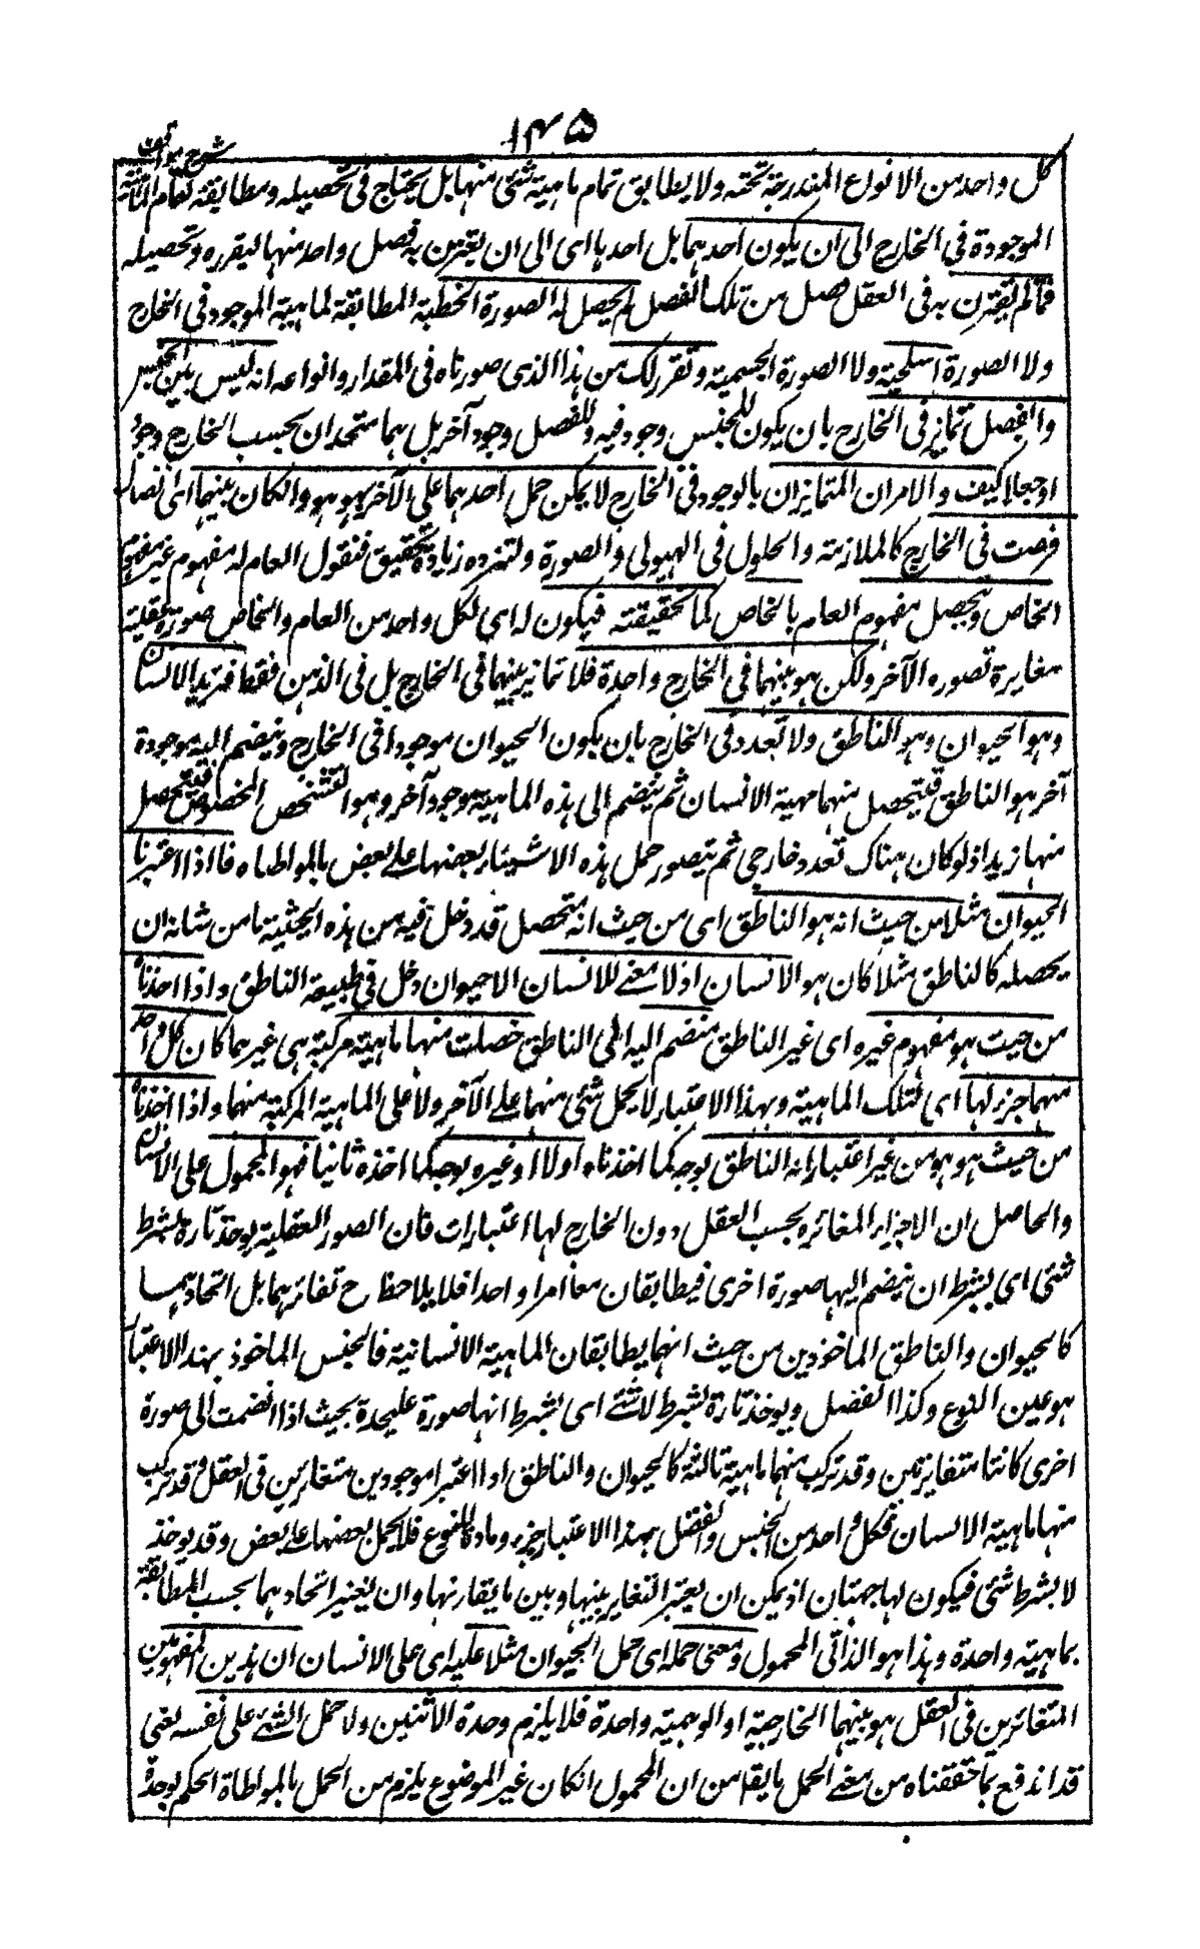 ١٤٥
شرح مواقف
كل واحد من الانواع المندرجة تحته ولا يطابق تمام ماهية شئ منها بل يحتاج فى تحصيله ومطابقته لتمام الماهية
الموجودة فى الخارج الى ان يكون احدهما بل احدها اى الى ان يقترن به فصل واحد منها ليقرره وتحصيله
فما لم يقترن به فى العقل فصل من تلك الفصل لم يحصل له الصورة الخطية المطابقة لماهية الموجود فى الخارج
ولا الصورة السطحية ولا الصورة الجسمية وتقرر لك من هذا الذى صورناه فى المقدار وانواعه انه ليس بين الجنس
والفصل تمايز فى الخارج بان يكون للجنس وجود فيه وللفصل وجود آخر بل هما متحدان بحسب الخارج وجودا
او جعلا كيف والامران المتمايزان بالوجود فى الخارج لا يمكن حمل احدهما على الآخر بهو هو وانكان بينهما اى اتصال
فرضت فى الخارج كالملازمة والحلول فى الهيولى والصورة ولنزده زيادة تحقيق فنقول العام له مفهوم غير مفهوم
الخاص ويحصل مفهوم العام بالخاص كما تحققته فيكون له اى لكل واحد من العام والخاص صورة عقلية
مغايرة تصوره الآخر ولكن هويتهما فى الخارج واحدة فلا تمايز بينهما فى الخارج بل فى الذهن فقط فزيد الانسان
وهو الحيوان وهو الناطق ولا تعدد فى الخارج بان يكون الحيوان موجودا فى الخارج وينضم اليه موجودة
آخر هو الناطق فيتحصل منهما مهية الانسان ثم ينضم الى هذه الماهية موجود آخر وهو التشخص المخصوص فيتحصل
منها زيد اذ لو كان هناك تعدد خارجى ثم يتصور حمل هذه الاشياء بعضها على بعض بالمواطاه فاذا اعتبرنا
الحيوان مثلا من حيث انه هو الناطق اى من حيث انه متحصل قد دخل فيه من هذه الحيثية ما من شانه ان
يحصله كالناطق مثلا كان هو الانسان اذ لا معنى للانسان الا حيوان دخل فى طبيعة الناطق واذا اخذناه
من حيث هو مفهوم غيره اى غير الناطق منضم اليه الى الناطق حصلت منها ماهية مركبة هى غيرهما كان كل واحد
منهما جزء لها اى لتلك الماهية وبهذا الاعتبار لا يحمل شئ منهما على الآخر ولا على الماهية المركبة منهما واذا اخذناه
من حيث هو هو من غير اعتبار انه الناطق بوجه كما اخذناه اولا او غيره بوجه كما اخذه ثانيا فهو المحمول على الانسان
والحاصل ان الاجزاء المغائره بحسب العقل دون الخارج لها اعتبارات فان الصور العقلية يوخذ تارة بشرط
شئ اى بشرط ان ينضم اليها صورة اخرى فيطابقان معا امرا واحدا فلا يلاحظ ح تغائرهما بل اتحادهما
كالحيوان والناطق الماخوذين من حيث انهما يطابقان الماهية الانسانية فالجنس الماخوذ بهذا الاعتبار
هو عين النوع وكذا الفصل ويوخذ تارة بشرط لا شئ اى بشرط انها صورة عليحدة بحيث اذا انضمت الى صورة
اخرى كانتا متغايرتين وقد تركب منهما ماهية ثالثة كالحيوان والناطق اذا اعتبرا موجودين متغائرين فى العقل وقد تركب
منها ماهية الانسان فكل واحد من الجنس والفصل بهذا الاعتبار جزء ومادة للنوع فلا يحمل بعضها على بعض وقد يوخذ
لا بشرط شئ فيكون لها جهتان اذ يمكن ان يعتبر التغاير بينها وبين ما يقارنها وان يعتبر اتحادهما بحسب المطابقة
بماهية واحدة وهذا هو الذاتى المحمول ومعنى حمله اى حمل الحيوان مثلا عليه اى على الانسان ان هذين المفهومين
المتغائرين فى العقل هويتهما الخارجية او الوهمية واحدة فلا يلزم وحدة الاثنين ولا حمل الشئ على نفسه يعنى
قد اندفع بما حققناه من معنى الحمل ما يقال من ان المحمول انكان غير الموضوع يلزم من الحمل بالمواطاة الحكم بوحدة